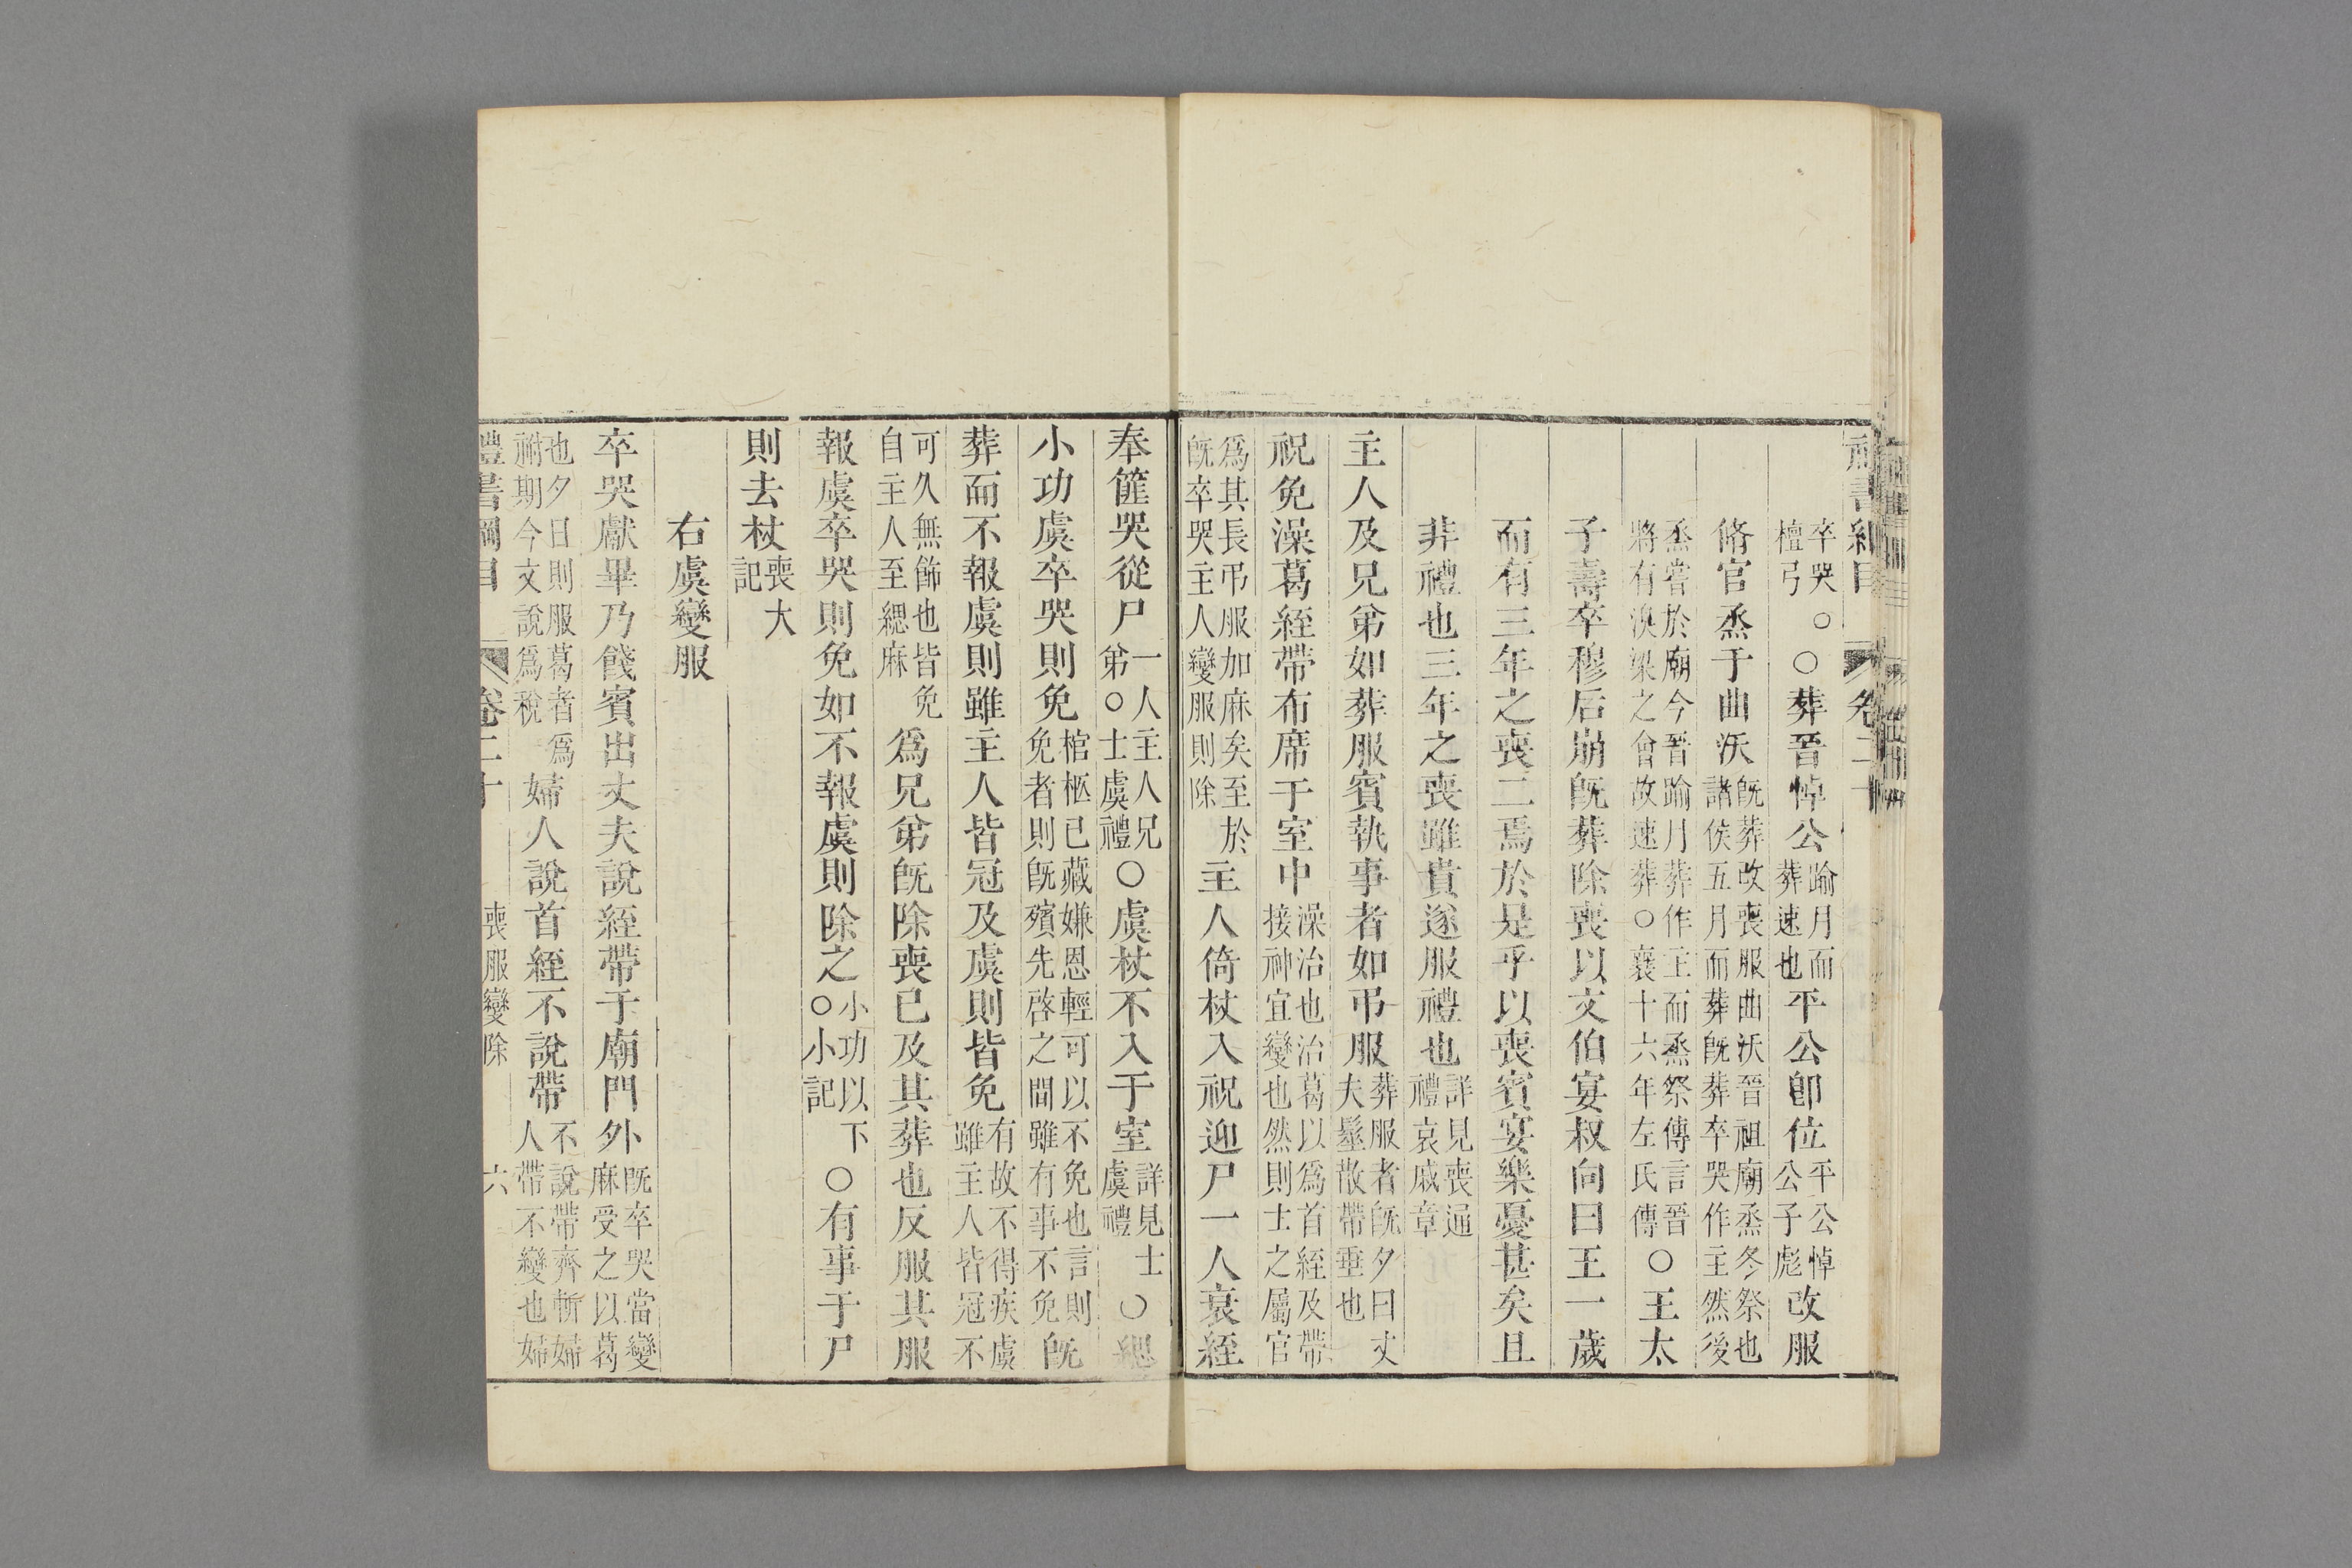 禮書綱目 卷二十
卒哭○檀弓○葬晉悼公踰月而葬速也平公卽位平公悼公子彪改服
脩官烝于曲沃旣葬改喪服曲沃晉祖廟烝冬祭也諸侯五月而葬旣葬卒哭作主然後
烝嘗於廟今晉踰月葬作主而烝祭傳言晉將有湨梁之會故速葬○襄十六年左氏傳○王太
子壽卒穆后崩旣葬除喪以文伯宴叔向曰王一歲
而有三年之喪二焉於是乎以喪賓宴樂憂甚矣且
非禮也三年之喪雖貴遂服禮也詳見喪通禮哀戚章
主人及兄弟如葬服賓執事者如弔服葬服者旣夕曰丈夫髽散帶垂也
祝免澡葛絰帶布席于室中澡治也治葛以爲首絰及帶接神宜變也然則士之屬官
爲其長弔服加麻矣至於旣卒哭主人變服則除主人倚杖入祝迎尸一人衰絰
奉篚哭從尸一人主人兄弟○士虞禮○虞杖不入于室詳見士虞禮○緦
小功虞卒哭則免棺柩已藏嫌恩輕可以不免也言則免者則旣殯先啓之間雖有事不免旣
葬而不報虞則雖主人皆冠及虞則皆免有故不得疾虞雖主人皆冠不
可久無飾也皆免自主人至緦麻爲兄弟旣除喪已及其葬也反服其服
報虞卒哭則免如不報虞則除之小功以下○小記○有事于尸
則去杖喪大記
右虞變服
卒哭獻畢乃餞賓出丈夫說絰帶于廟門外旣卒哭當變麻受之以葛
也夕日則服葛者爲祔期今文說爲稅婦人說首絰不說帶不說帶齊斬婦人帶不變也婦
禮書綱目 卷二十 喪服變除 六